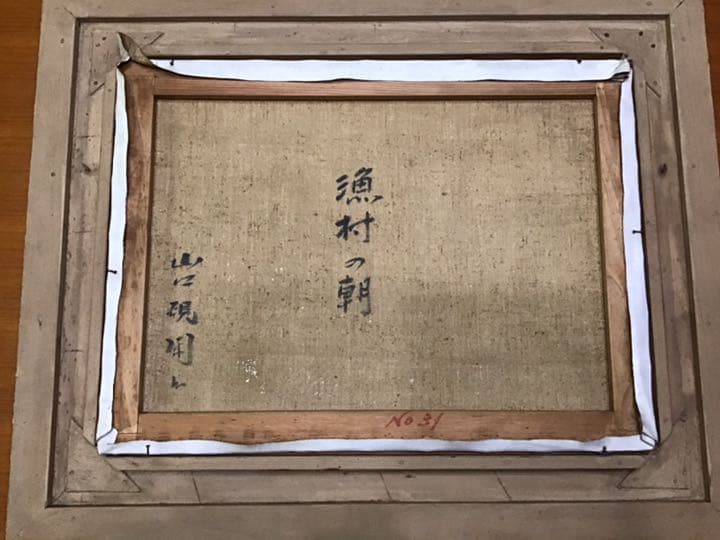 漁村の朝
山口
No 31